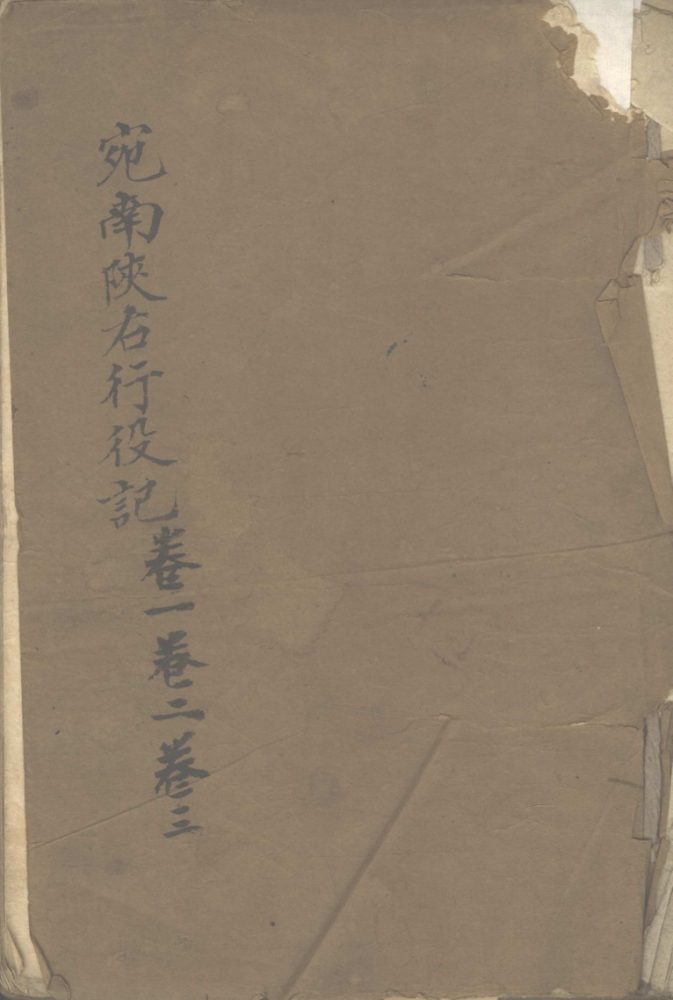 宛南陝右行役記
卷一卷二卷三